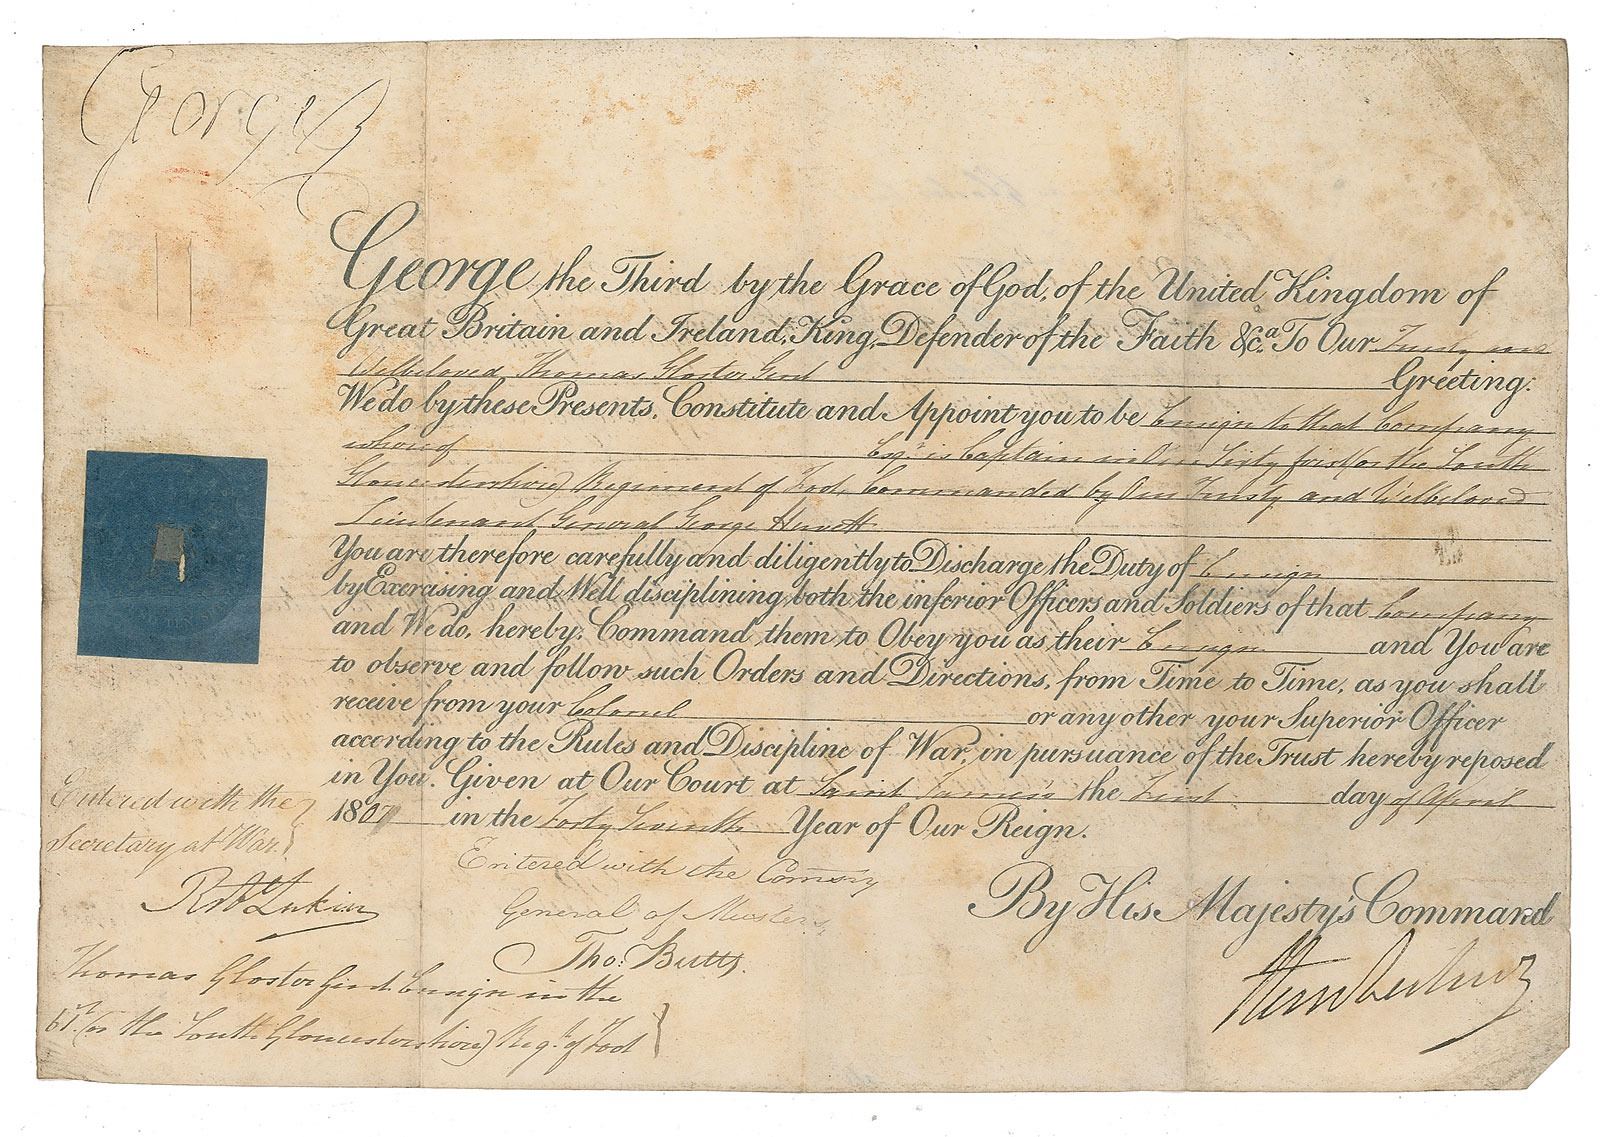 George R
George the Third by the Grace of God, of the United Kingdom of
Great Britain and Ireland, King, Defender of the Faith &c.a To Our Trusty and
Welbeloved Thomas Gloster Gent Greeting:
We do by these Presents, Constitute and Appoint you to be Ensign to that Company
whereof Esqr. is Captain in Our Sixty first (or the South
Gloucestershire) Regiment of Foot, Commanded by Our Trusty and Welbeloved
Lieutenant General George Hewett
You are therefore carefully and diligently to Discharge the Duty of Ensign
by Exercising and Well disciplining both the inferior Officers and Soldiers of that Company
and We do, hereby, Command them to Obey you as their Ensign and You are
to observe and follow such Orders and Directions, from Time to Time, as you shall
receive from your Colonel or any other your Superior Officer
according to the Rules and Discipline of War, in pursuance of the Trust hereby reposed
in You. Given at Our Court at Saint James's the First day of April
1807 in the Forty Seventh Year of Our Reign.
By His Majesty's Command
Entered with the
Secretary at War.
Robt Lukin
Entered with the Comsry
General of Musters,
Tho: Butts.
Thomas Gloster Gent. Ensign in the
61st. (or the South Gloucestershire) Regt. of Foot